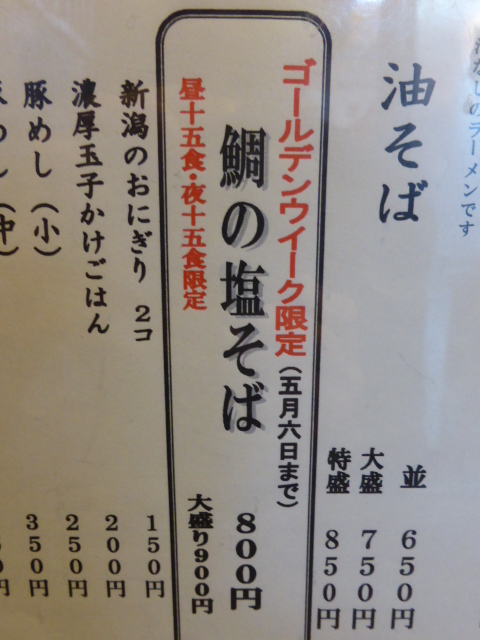 なしのラーメンです
油そば
並 650円
大盛 750円
特盛 850円
ゴールデンウイーク限定(五月六日まで)
鯛の塩そば 800円
大盛り900円
昼十五食・夜十五食限定
新潟のおにぎり 2コ 150円
濃厚玉子かけごはん 200円
豚めし(小) 250円
めし(中) 350円